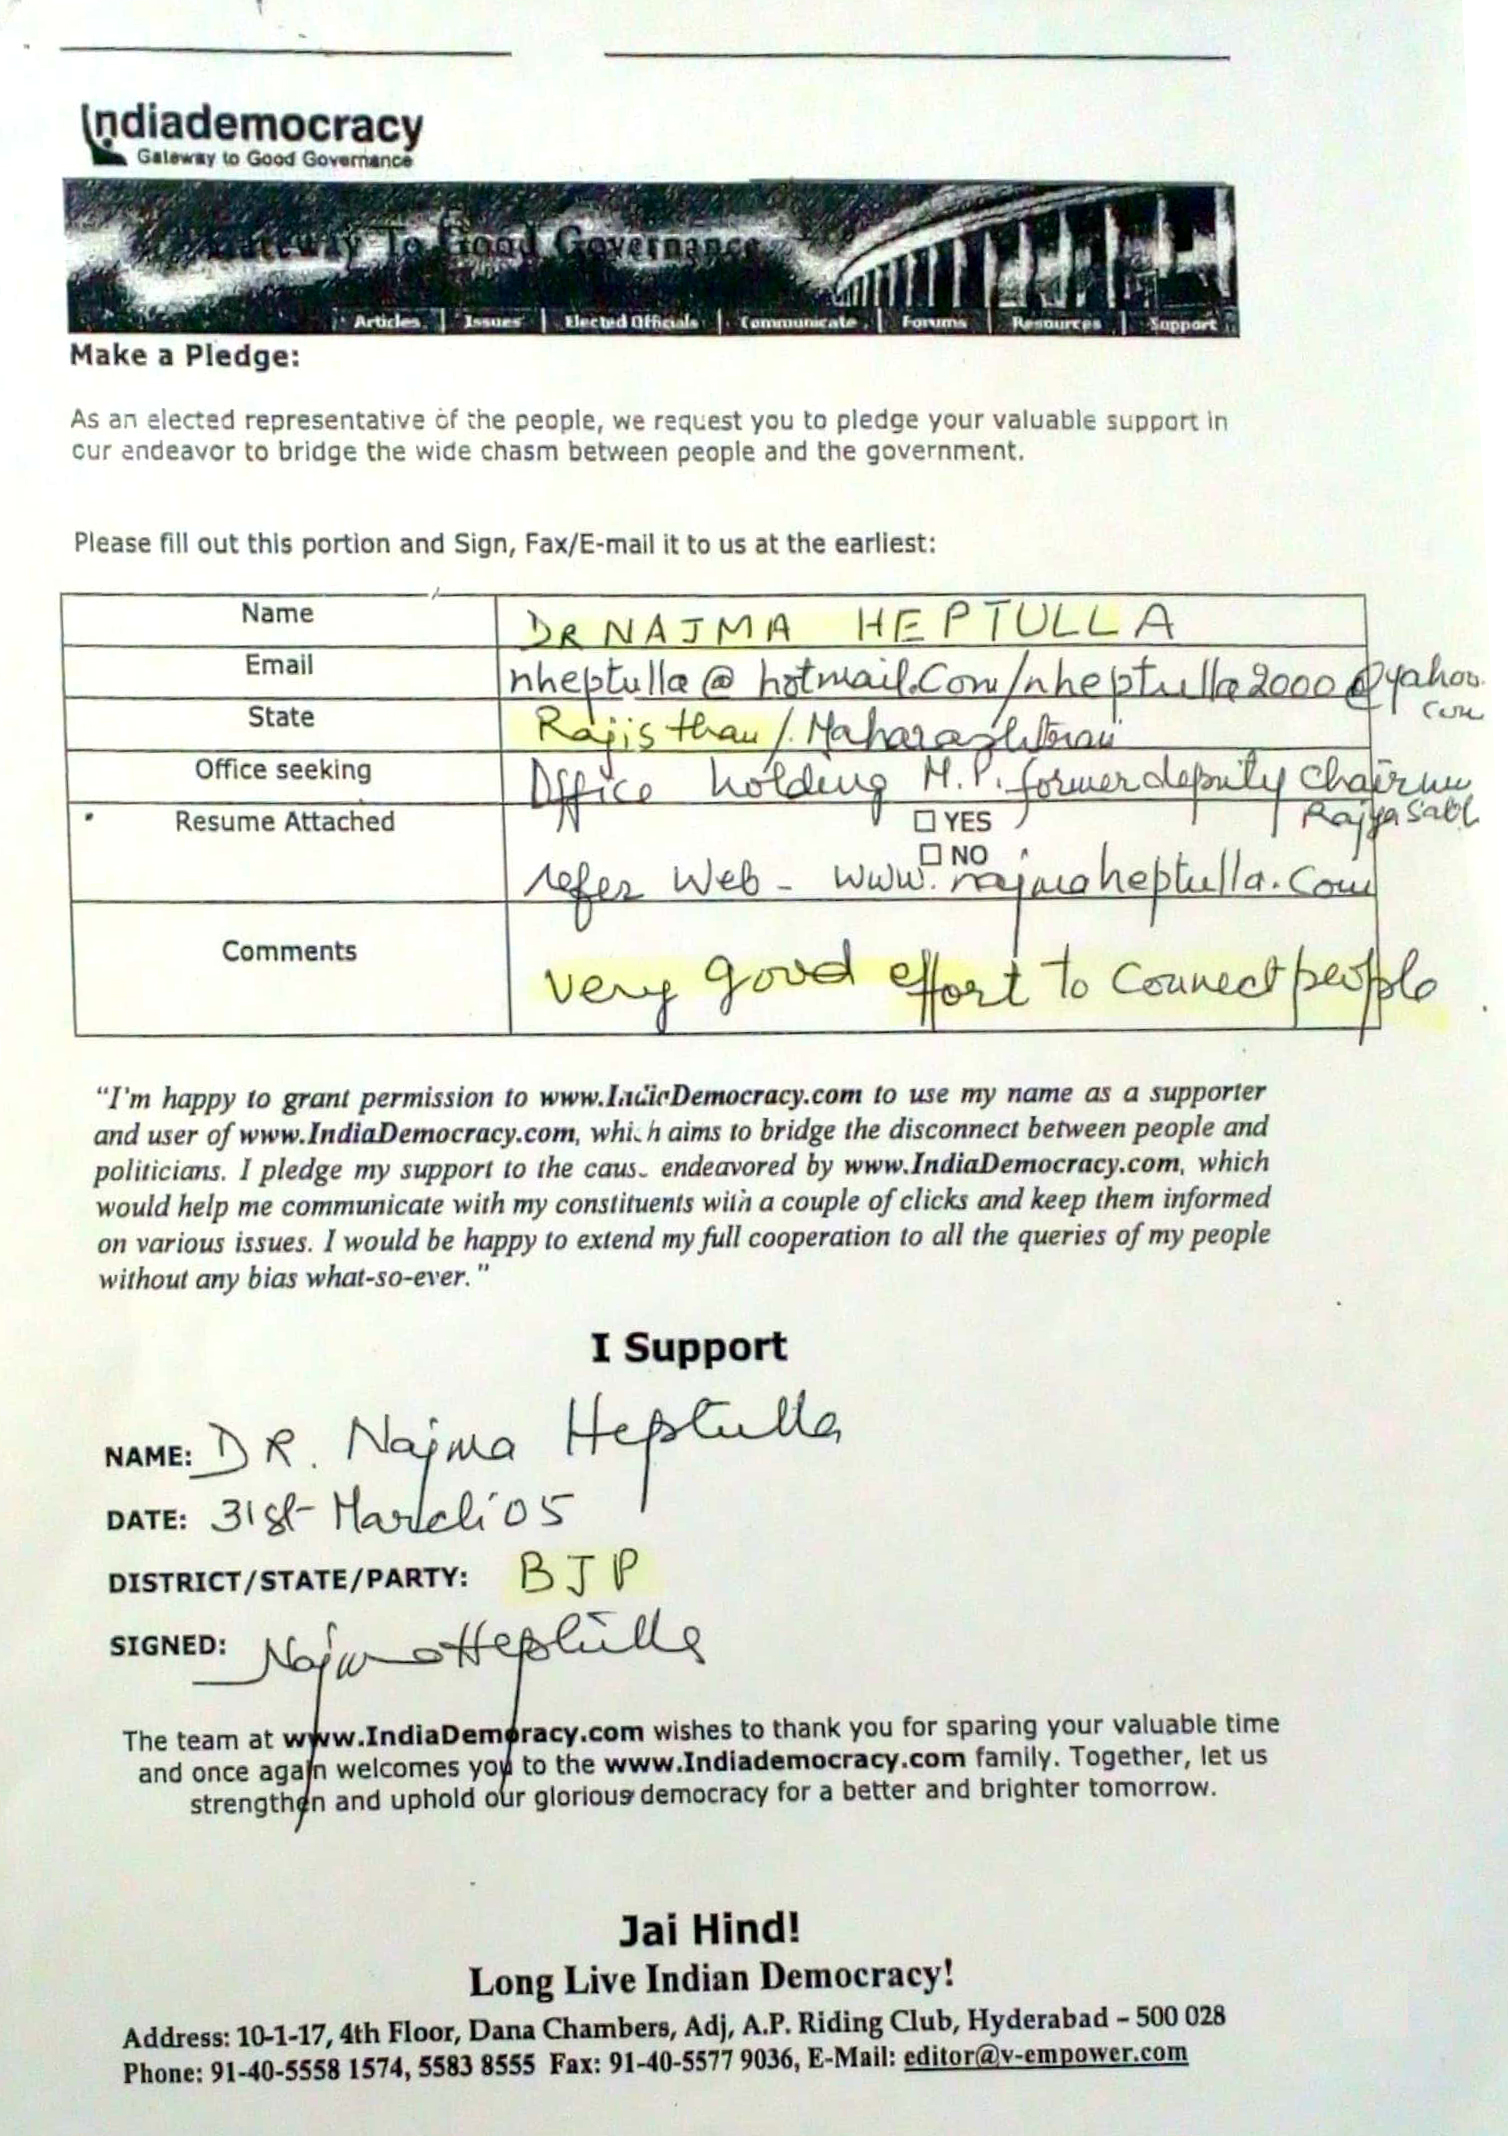 Indiademocracy
Gateway to Good Governance
Gateway To Good Governance
Articles | Issues | Elected Officials | Communicate | Forums | Resources | Support
Make a Pledge:
As an elected representative of the people, we request you to pledge your valuable support in
our endeavor to bridge the wide chasm between people and the government.
Please fill out this portion and Sign, Fax/E-mail it to us at the earliest:
Name DR NAJMA HEPTULLA
Email nheptulla@hotmail.Com/nheptulla2000@yahoo.
com
State Rajisthan/Maharashtra
Office seeking Office holding M.P. former deputy Chairman
Rajya Sabh
Resume Attached ☐ YES
☐ NO
refer Web - www.najmaheptulla.Com
Comments very good effort to Connect people
"I'm happy to grant permission to www.IndiaDemocracy.com to use my name as a supporter
and user of www.IndiaDemocracy.com, which aims to bridge the disconnect between people and
politicians. I pledge my support to the cause endeavored by www.IndiaDemocracy.com, which
would help me communicate with my constituents with a couple of clicks and keep them informed
on various issues. I would be happy to extend my full cooperation to all the queries of my people
without any bias what-so-ever."
I Support
NAME: DR. Najma Heptulla
DATE: 31st March '05
DISTRICT/STATE/PARTY: BJP
SIGNED: Najma Heptulla
The team at www.IndiaDemoracy.com wishes to thank you for sparing your valuable time
and once again welcomes you to the www.Indiademocracy.com family. Together, let us
strengthen and uphold our glorious democracy for a better and brighter tomorrow.
Jai Hind!
Long Live Indian Democracy!
Address: 10-1-17, 4th Floor, Dana Chambers, Adj, A.P. Riding Club, Hyderabad – 500 028
Phone: 91-40-5558 1574, 5583 8555 Fax: 91-40-5577 9036, E-Mail: editor@v-empower.com